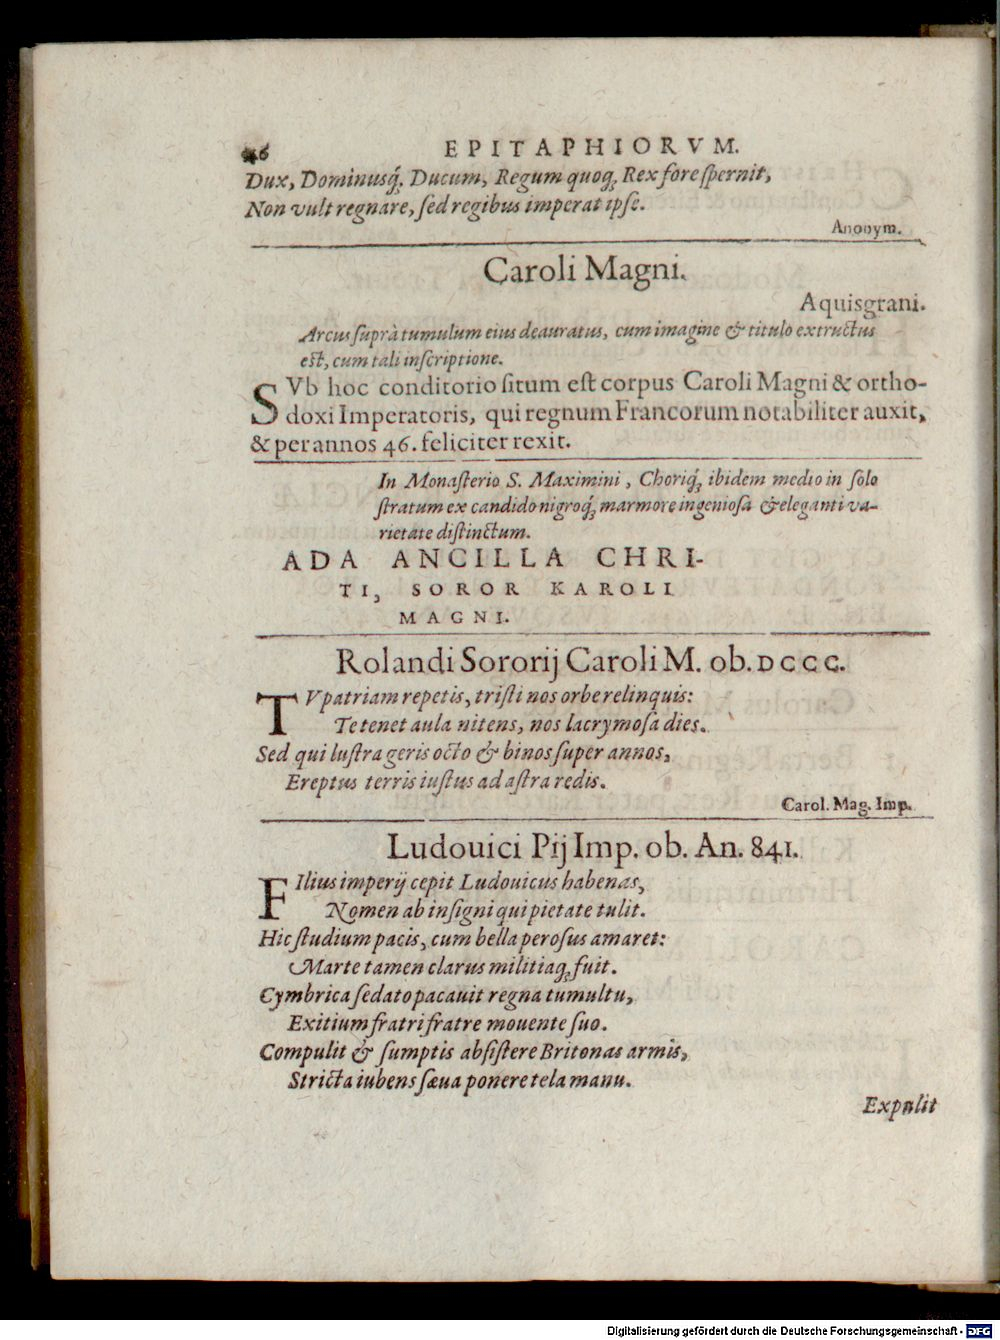 46 EPITAPHIORVM.
Dux, Dominusq́; Ducum, Regum quoq; Rex fore ſpernit,
Non vult regnare, ſed regibus imperat ipſe.
Anonym.
Caroli Magni.
Aquisgrani.
Arcus ſuprà tumulum eius deauratus, cum imagine & titulo extructus
est, cum tali inſcriptione.
SVb hoc conditorio ſitum eſt corpus Caroli Magni & ortho-
doxi Imperatoris, qui regnum Francorum notabiliter auxit,
& per annos 46. feliciter rexit.
In Monaſterio S. Maximini, Choriq́; ibidem medio in ſolo
ſtratum ex candido nigroq́; marmore ingenioſa & eleganti va-
rietate diſtinctum.
ADA ANCILLA CHRI-
TI, SOROR KAROLI
MAGNI.
Rolandi Sororij Caroli M. ob. DCCC.
TV patriam repetis, triſti nos orbe relinquis:
Te tenet aula nitens, nos lacrymoſa dies.
Sed qui luſtra geris octo & binos ſuper annos,
Ereptus terris iuſtus ad aſtra redis.
Carol. Mag. Imp.
Ludouici Pij Imp. ob. An. 841.
FIlius imperij cepit Ludouicus habenas,
Nomen ab inſigni qui pietate tulit.
Hic ſtudium pacis, cum bella peroſus amaret:
Marte tamen clarus militiaq; fuit.
Cymbrica ſedato pacauit regna tumultu,
Exitium fratri fratre mouente ſuo.
Compulit & ſumptis abſiſtere Britonas armis,
Stricta iubens ſæua ponere tela manu.
Expulit
Digitalisierung gefördert durch die Deutsche Forschungsgemeinschaft - DFG